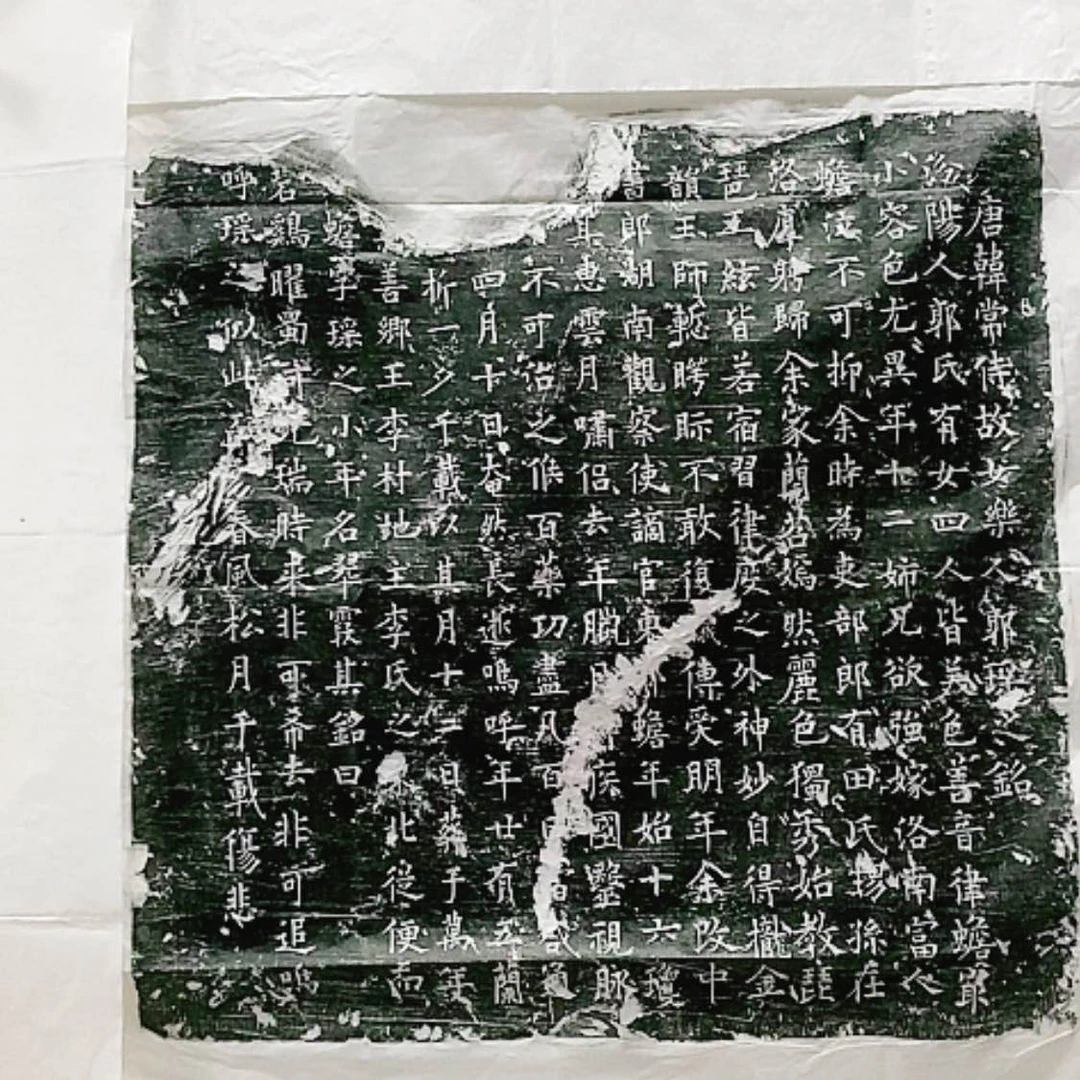 唐韓常侍故女樂人郭瑶之銘
汾陽人郭氏有女四人皆美色善音律蟾最
小容色尤異年十二姊兄欲強嫁洛南富人
蟾志不可抑余時為吏部郎有田氏孫在
洛厚躬歸余家蘭嫣然麗色獨秀始教琵
琶玉絃皆若宿習律度之外神妙自得攏金
韻玉師聽眙不敢復傳受朋年余改中
書郎湖南觀察使謫官東蟾年始十六瓊
其惠雲月嘯侣去年臘月疾國毉視脉
不可治之候百藥功盡凡百
四月十日奄然長逝嗚呼年廿有五蘭
折一夕千載以其月十三日葬于萬年
善鄉王李村地主李氏之北從便而
蟾字瑶之小年名翠霞其銘曰
若鷄曜蜀瑞時来非可希去非可追嗚
呼瑶之似此春風松月千載傷悲